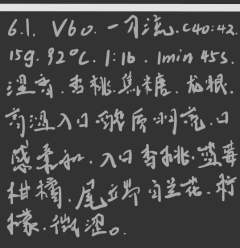 6.1. V60. 一刀流. C40:42.
15g. 92℃. 1:16. 1min 45s.
湿香. 杏桃. 焦糖.
高温入口 酸质明亮. 口
感柔和. 入口杏桃. 蓝莓
柑橘. 尾
微涩。